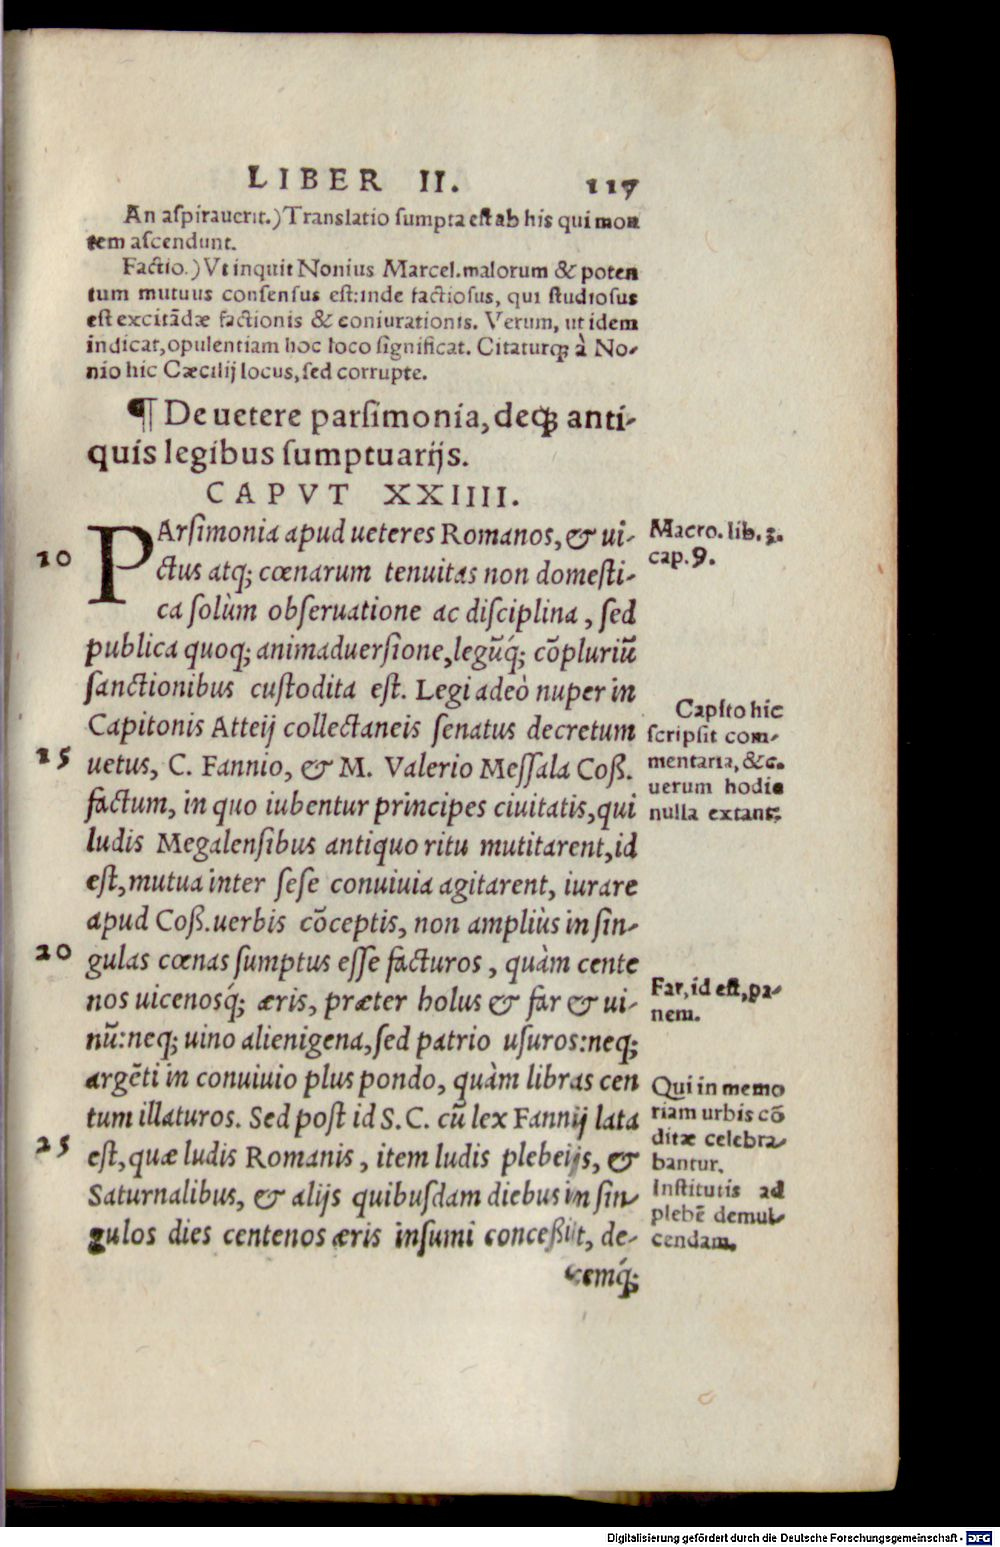 LIBER II. 117
An aspirauerit.) Translatio sumpta est ab his qui mon
tem ascendunt.
Factio.) Vt inquit Nonius Marcel. malorum & poten
tum mutuus consensus est: inde factiosus, qui studiosus
est excitādæ factionis & coniurationis. Verum, ut idem
indicat, opulentiam hoc loco significat. Citaturq; à No-
nio hic Cæcilij locus, sed corrupte.
¶ De uetere parsimonia, deq; anti-
quis legibus sumptuarijs.
CAPVT XXIIII.
PArsimonia apud ueteres Romanos, & ui-
Macro. lib. 3.
cap. 9.
10
ctus atq; cœnarum tenuitas non domesti-
ca solùm obseruatione ac disciplina, sed
publica quoq; animaduersione, legūq́; cōpluriū
sanctionibus custodita est. Legi adeò nuper in
Capitonis Atteij collectaneis senatus decretum
Capito hic
scripsit com-
mentaria, &c.
uerum hodie
nulla extant.
15
uetus, C. Fannio, & M. Valerio Messala Coß.
factum, in quo iubentur principes ciuitatis, qui
ludis Megalensibus antiquo ritu mutitarent, id
est, mutua inter sese conuiuia agitarent, iurare
apud Coß. uerbis cōceptis, non ampliùs in sin-
20
gulas cœnas sumptus esse facturos, quàm cente
nos uicenosq́; æris, præter holus & far & ui-
Far, id est, pa-
nem.
nū: neq; uino alienigena, sed patrio usuros: neq;
argēti in conuiuio plus pondo, quàm libras cen
tum illaturos. Sed post id S. C. cū lex Fannij lata
Qui in memo
riam urbis cō
ditæ celebra-
bantur.
25
est, quæ ludis Romanis, item ludis plebeijs, &
Saturnalibus, & alijs quibusdam diebus in sin-
gulos dies centenos æris insumi conceßit, de-
Institutis ad
plebē demul-
cendam.
cemq́;
Digitalisierung gefördert durch die Deutsche Forschungsgemeinschaft - DFG